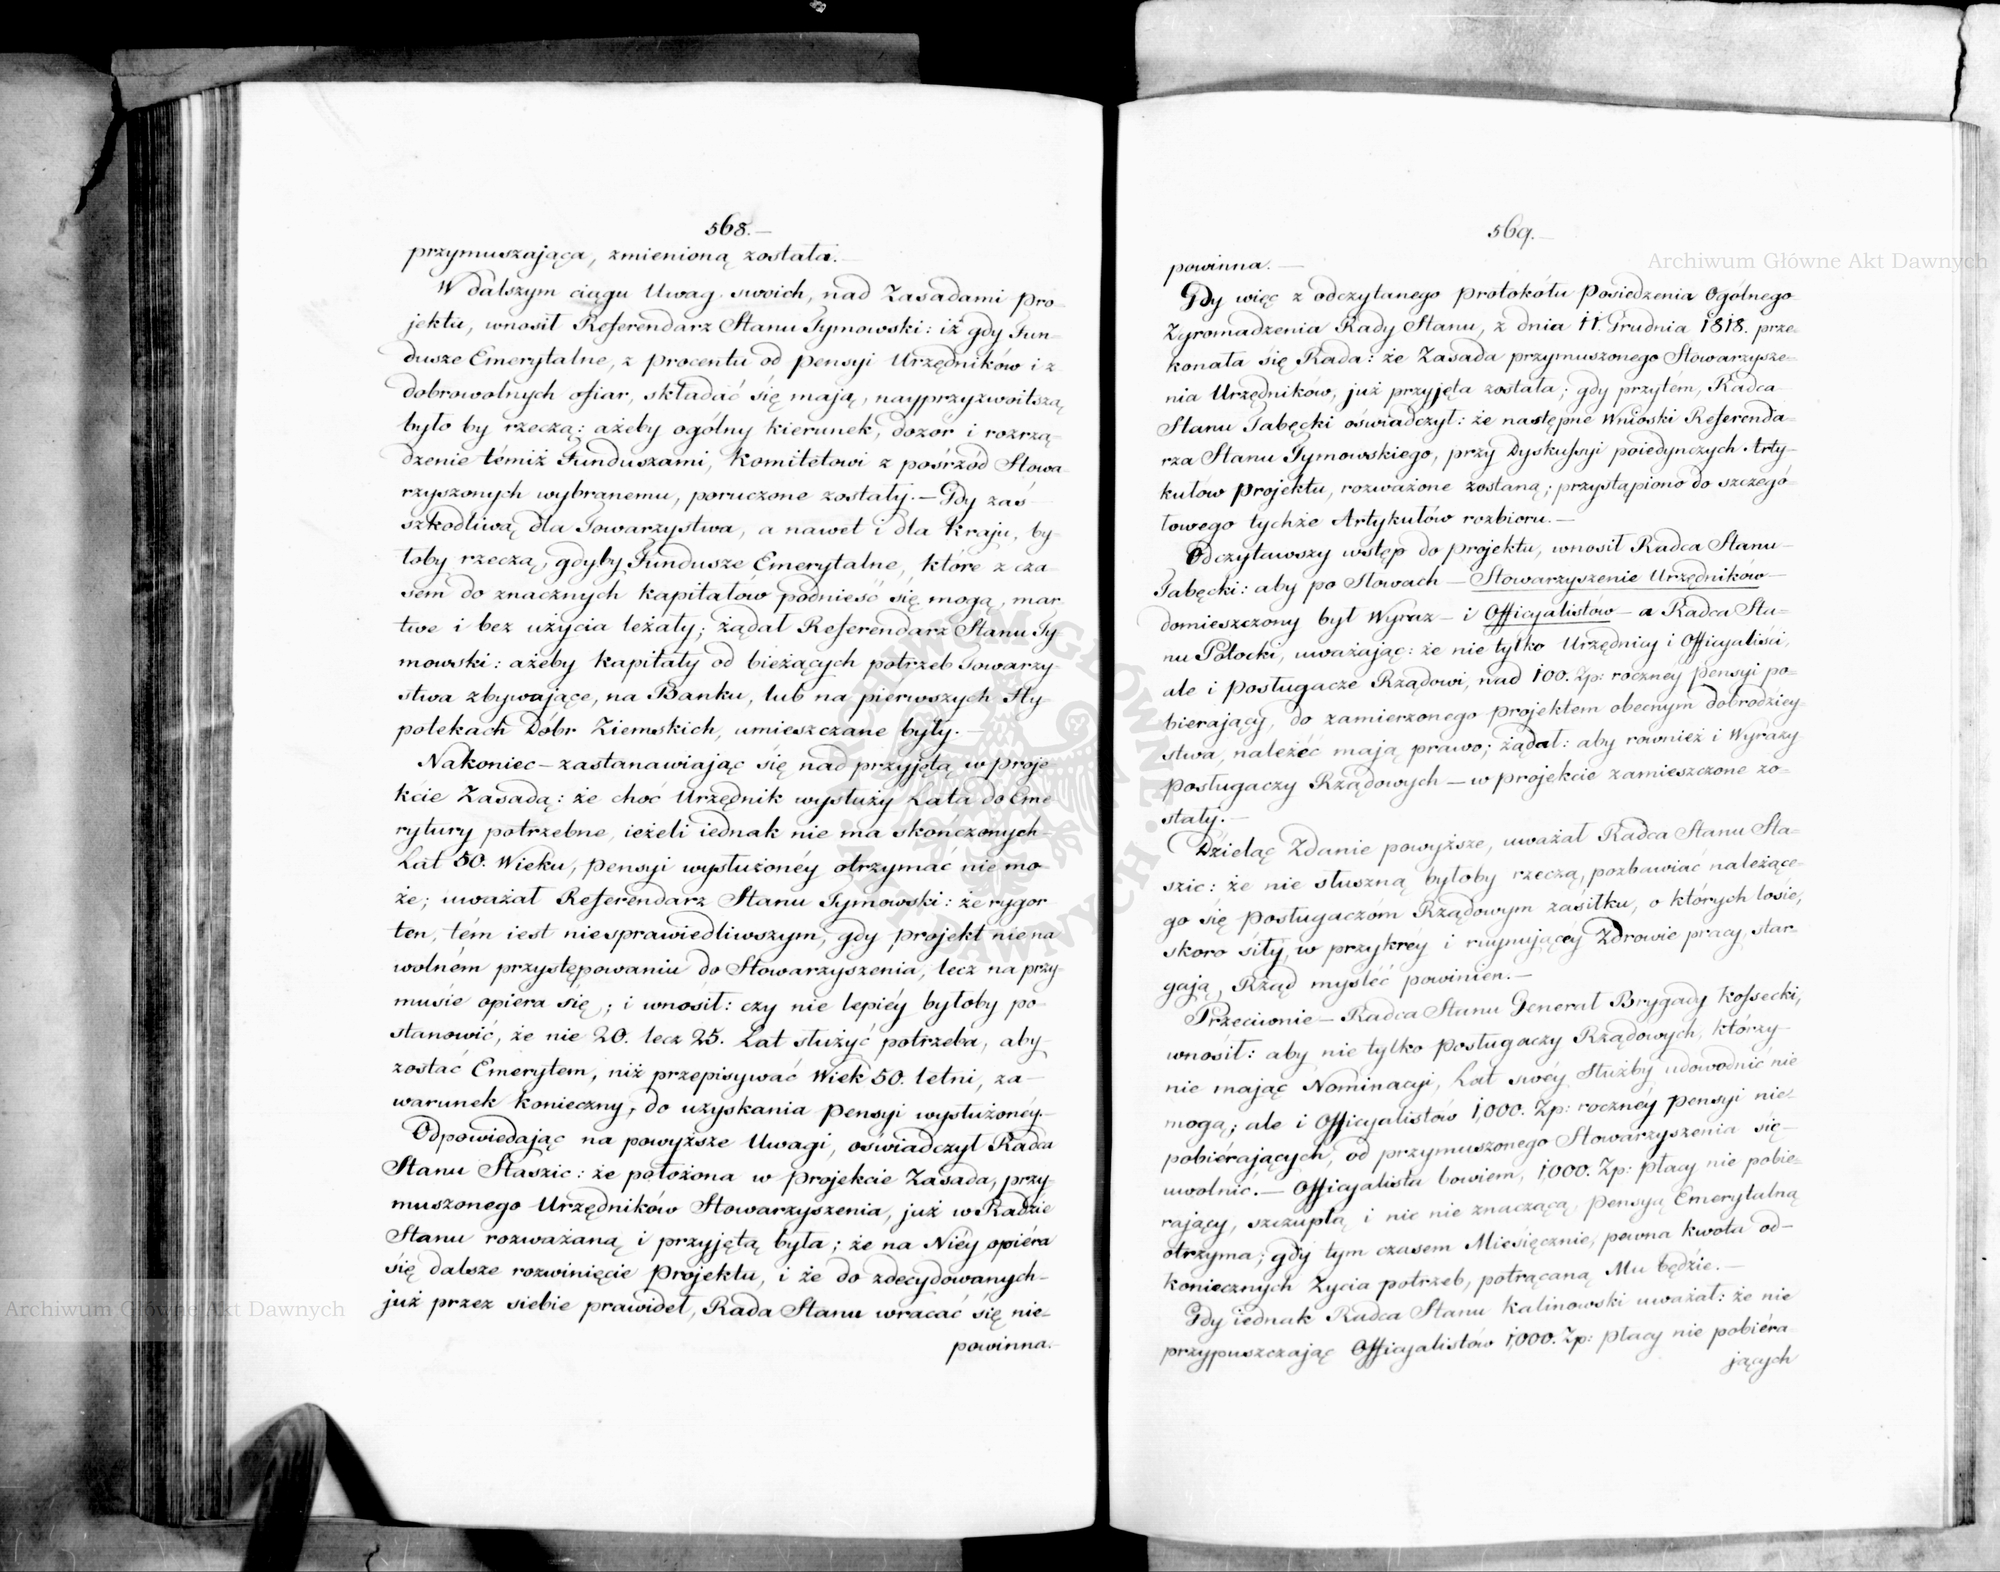 568.—
przymuszająca, zmienioną została.—
W dalszym ciągu Uwag swoich, nad Zasadami Pro-
jektu, wnosił Referendarz Stanu Tymowski: iż gdy Fun-
dusze Emerytalne, z procentu od pensyi Urzędników i z
dobrowolnych ofiar, składać się mają, nayprzyzwoitszą
było by rzeczą: ażeby ogólny kierunek, dozór i rozrzą-
dzenie témiż Funduszami, Komitetowi z pośrzód Stowa-
rzyszonych wybranemu, poruczone zostały.— Gdy zaś
szkodliwą dla Towarzystwa, a nawet i dla Kraju, by-
łoby rzeczą, gdyby Fundusze Emerytalne, które z cza-
sem do znacznych kapitałów podnieść się mogą, mar-
twe i bez użycia leżały; żądał Referendarz Stanu Ty-
mowski: ażeby kapitały od bieżących potrzeb Towarzy-
stwa zbywające, na Banku, lub na pierwszych Hy-
potekach Dóbr Ziemskich, umieszczane były.—
Nakoniec— zastanawiając się nad przyjętą w Proje-
kcie Zasadą: że choć Urzędnik wysłuży Lata do Eme-
rytury potrzebne, ieżeli iednak nie ma skończonych
Lat 50. Wieku, pensyi wysłużonéy otrzymać nie mo-
że; uważał Referendarz Stanu Tymowski: że rygor
ten, tém iest niesprawiedliwszym, gdy projekt nie na
wolném przystępowaniu do Stowarzyszenia, lecz na przy-
musie opiera się; i wnosił: czy nie lepiéy byłoby po-
stanowić, że nie 20. lecz 25. Lat służyć potrzeba, aby
zostać Emerytem, niż przepisywać Wiek 50. letni, za—
warunek konieczny, do uzyskania pensyi wysłużonéy.—
Odpowiedając na powyższe Uwagi, oświadczył Radca
Stanu Staszic: że położona w projekcie Zasada, przy-
muszonego Urzędników Stowarzyszenia, już w Radzie
Stanu rozważaną i przyjętą była; że na Niéy opiéra
się dalsze rozwinięcie Projektu, i że do zdecydowanych—
już przez siebie prawideł, Rada Stanu wracać się nie—
powinna.—
569.—
powinna.—
Gdy więc z odczytanego Protokółu Posiedzenia Ogólnego
Zgromadzenia Rady Stanu, z dnia 11. Grudnia 1818. prze-
konała się Rada: że Zasada przymuszonego Stowarzysze-
nia Urzędników, już przyjęta została; gdy przytém, Radca
Stanu Tabęcki oświadczył: że następne Wnioski Referenda-
rza Stanu Tymowskiego, przy Dyskussyi poiedynczych Arty-
kułów Projektu, rozważone zostaną; przystąpiono do szczegó-
łowego tychże Artykułów rozbioru.—
Odczytawszy wstęp do projektu, wnosił Radca Stanu—
Tabęcki: aby po Słowach— Stowarzyszenie Urzędników—
domieszczony był Wyraz— i Officyalistów— a Radca Sta-
nu Potocki, uważając: że nie tylko Urzędnicy i Officyaliści,
ale i Posługacze Rządowi, nad 100. Zp: rocznéy pensyi po-
bierający, do zamierzonego projektem obecnym dobrodziey-
stwa, należéć mają prawo; żądał: aby również i Wyrazy
Posługaczy Rządowych— w projekcie zamieszczone zo-
stały.—
Dzieląc Zdanie powyższe, uważał Radca Stanu Sta-
szic: że nie słuszną byłoby rzeczą, pozbawiać należące-
go się posługaczóm Rządowym zasiłku, o których losie,
skoro siły, w przykréy i ruynującéy Zdrowie pracy, star-
gają, Rząd mysléć powinien.—
Przeciwnie— Radca Stanu Generał Brygady Kossecki,
wnosił: aby nie tylko posługaczy Rządowych, którzy—
nie mając Nominacyi, Lat swéy Służby udowodnić nie
mogą; ale i Officyalistów 1,000. Zp: rocznéy pensyi nie
pobiérających, od przymuszonego Stowarzyszenia się—
uwolnić.— Officyalista bowiem, 1,000. Zp: płacy nie pobie-
rający, szczupłą i nic nie znaczącą, pensyą Emerytalną
otrzyma; gdy tym czasem Miesięcznie, pewna kwota od—
koniecznych Życia potrzeb, potrącaną Mu będzie.—
Gdy iednak Radca Stanu Kalinowski uważał: że nie
przypuszczając Officyalistów 1,000. Zp: płacy nie pobiéra
jących
Archiwum Główne Akt Dawnych
Archiwum Główne Akt Dawnych